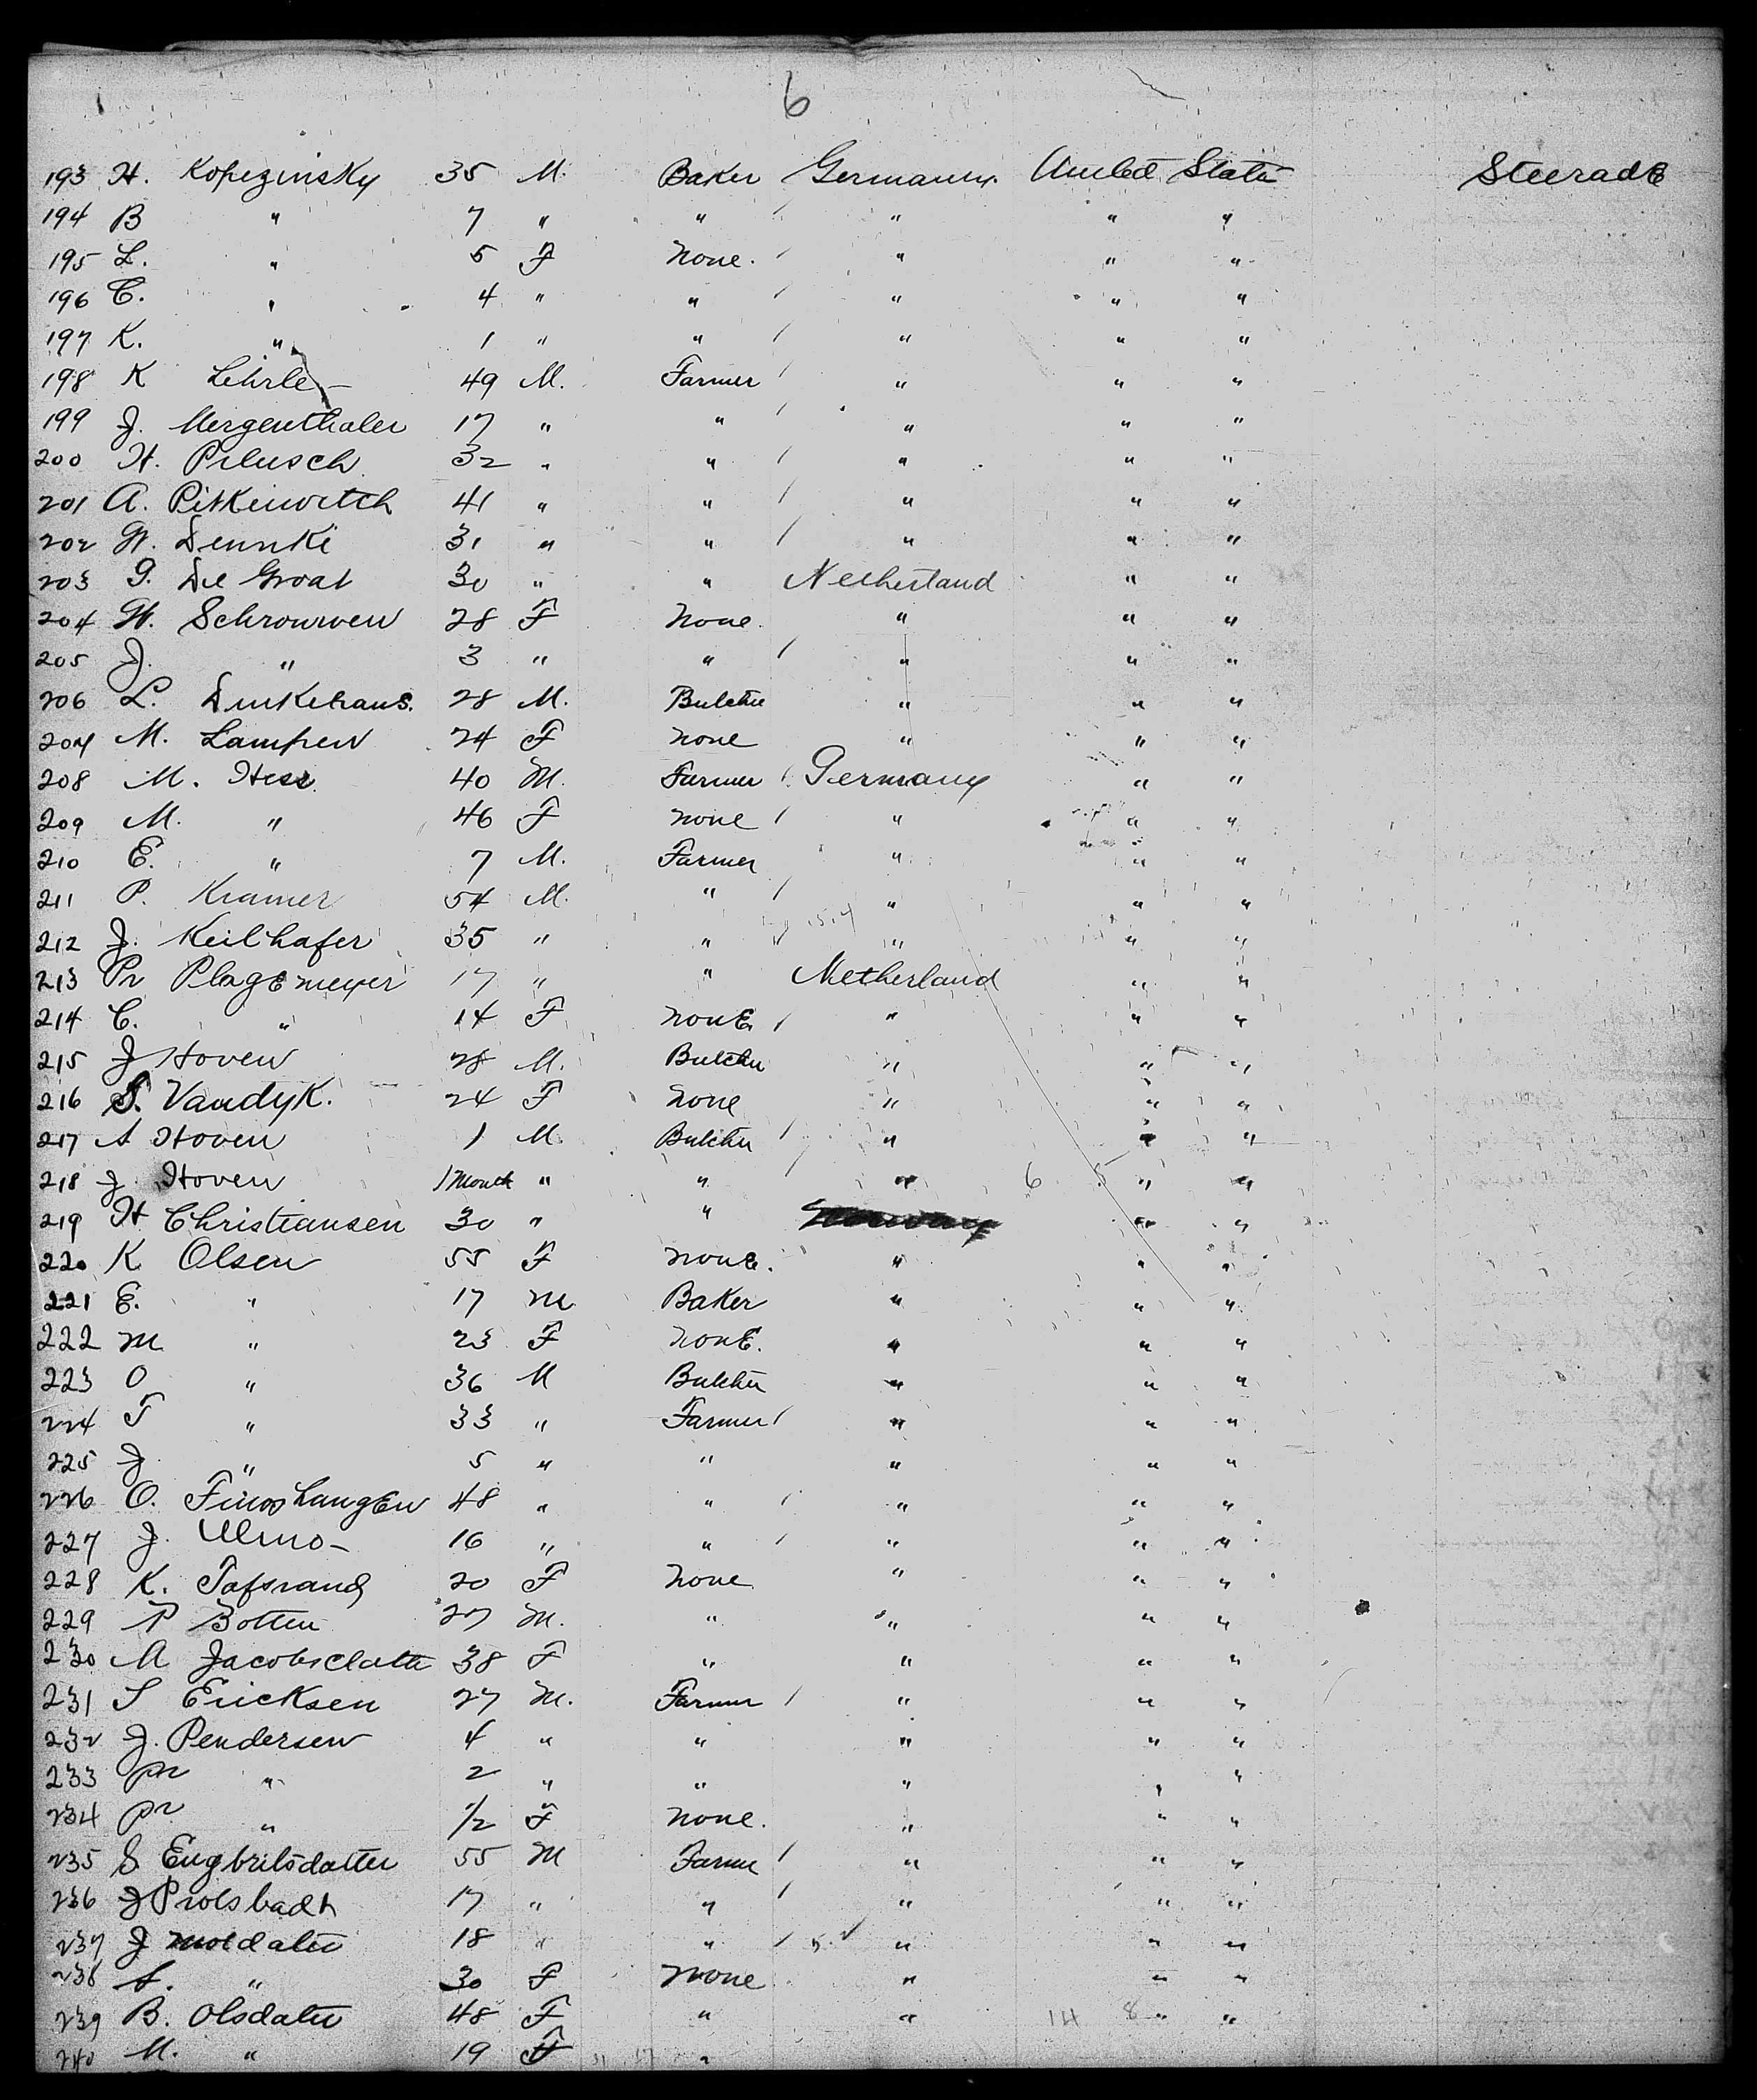 6
193 H. Kopezinsky 35 M. Baker Germany. United States Steerade
194 B " 7 " " " " "
195 L. " 5 F None. " " "
196 C. " 4 " " " " "
197 K. " 1 " " " " "
198 K Lehrle - 49 M. Farmer " " "
199 J. Mergenthaler 17 " " " " "
200 H. Pilusch 32 " " " " "
201 A. Pitkewitch 41 " " " " "
202 W. Dennki 31 " " " " "
203 G. De Groat 30 " " Netherland " "
204 W. Schrouwen 28 F None. " " "
205 J. " 3 " " " " "
206 L. Dinkehaus. 28 M. Butcher " " "
207 M. Lampen 24 F None " " "
208 M. Hess 40 M. Farmer Germany " "
209 M. " 46 F None " " "
210 E. " 7 M. Farmer " " "
211 P. Kramer 54 M. " " " "
212 J. Keilhafer 35 " " " " "
213 Pr Plagemeyer 17 " " Netherland " "
214 C. " 14 F None " " "
215 J Hoven 28 M. Butcher " " "
216 S. Vandyk. 24 F None " " "
217 A Hoven 1 M. Butcher " " "
218 J. Hoven 1 Month " " " 6 5 " "
219 H Christiansen 30 " " " "
220 K Olsen 55 F None. " " "
221 E. " 17 M Baker " " "
222 M " 23 F None. " " "
223 O " 36 M Butcher " " "
224 T " 33 " Farmer " " "
225 J. " 5 " " " " "
226 O. 48 " " " " "
227 J. Ulmo - 16 " " " " "
228 K. Tafsrand 20 F None " " "
229 P Botten 27 M. " " " "
230 M Jacobsdatte 38 F " " " "
231 S Ericksen 27 M. Farmer " " "
232 J. Pendersen 4 " " " " "
233 Pr " 2 " " " " "
234 Pr " 1/2 F None. " " "
235 S Engbritsdatter 55 M Farme " " "
236 J Prolsbadh 17 " " " " "
237 J Moldatte 18 " " " " "
238 A. " 30 F None " " "
239 B. Olsdatte 48 F " " 14 8 " "
240 M. " 19 F "